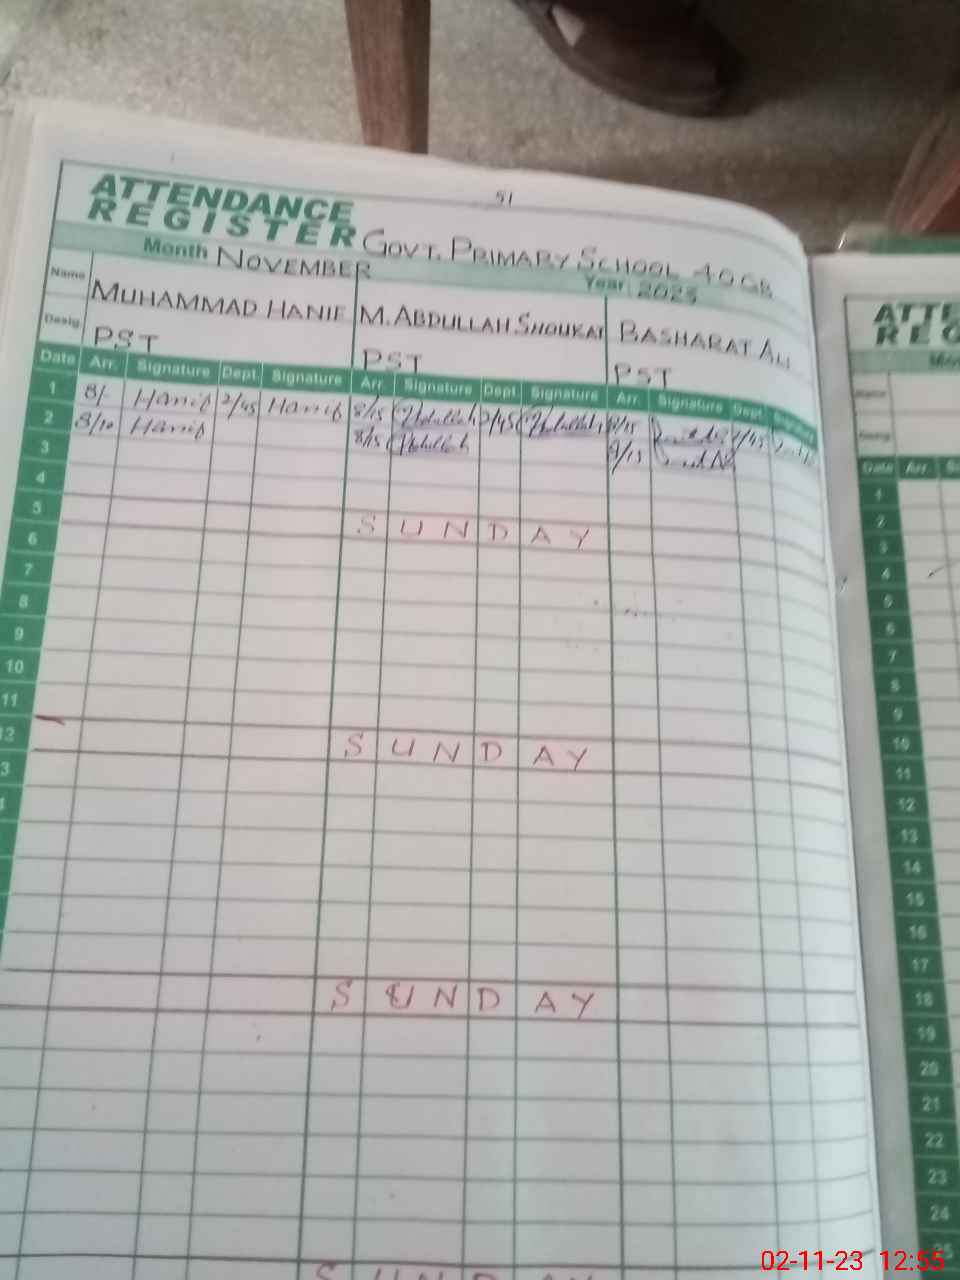 51
ATTENDANCE
REGISTER GOVT. PRIMARY SCHOOL 40 GB
Month NOVEMBER Year: 2023
Name MUHAMMAD HANIF M. ABDULLAH SHOUKAT BASHARAT ALI
Desig. PST PST PST
Date Arr. Signature Dept. Signature Arr. Signature Dept. Signature Arr. Signature Dept. Signature
1 8/- Hanif 2/45 Hanif 8/15 Abdullah 2/45 Abdullah 8/15 2/45
2 8/10 Hanif 8/15 Abdullah 8/15
3
4
5 SUNDAY
6
7
8
9
10
11
12 SUNDAY
3
SUNDAY
SUNDAY
ATTE
REG
Name
Desig.
Date Arr.
1
2
3
4
5
6
7
8
9
10
11
12
13
14
15
16
17
18
19
20
21
22
23
24
25
02-11-23 12:55